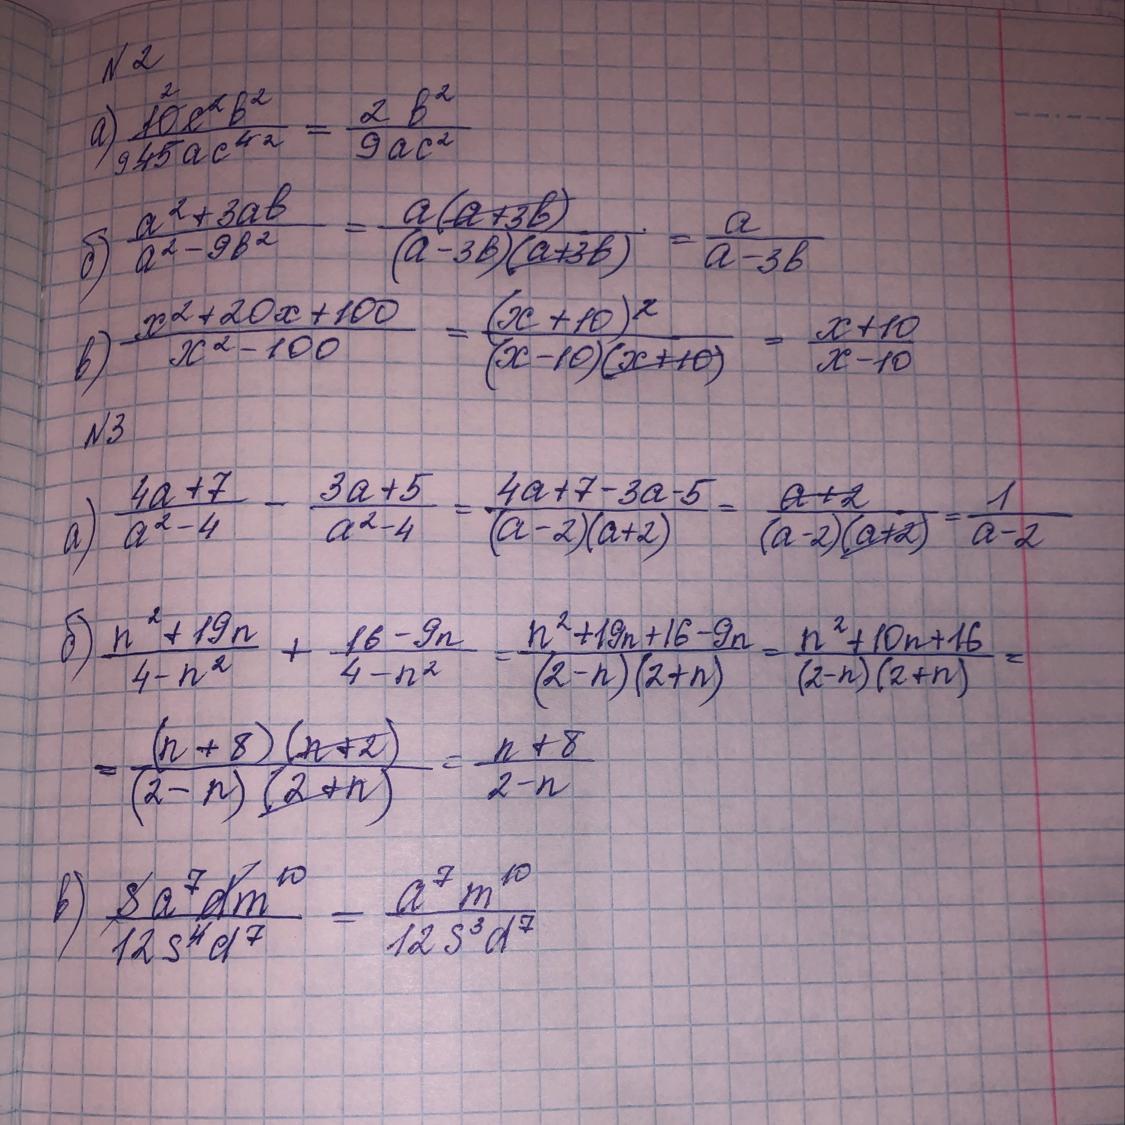 N2
а) 10c²b² / 45ac⁴ = 2b² / 9ac²
б) a²+3ab / a²-9b² = a(a+3b) / (a-3b)(a+3b) = a / a-3b
в) x²+20x+100 / x²-100 = (x+10)² / (x-10)(x+10) = x+10 / x-10
N3
а) 4a+7 / a²-4 - 3a+5 / a²-4 = 4a+7-3a-5 / (a-2)(a+2) = a+2 / (a-2)(a+2) = 1 / a-2
б) n²+19n / 4-n² + 16-9n / 4-n² = n²+19n+16-9n / (2-n)(2+n) = n²+10n+16 / (2-n)(2+n) =
= (n+8)(n+2) / (2-n)(2+n) = n+8 / 2-n
в) sa⁷dm¹⁰ / 12s⁴d⁷ = a⁷m¹⁰ / 12s³d⁷